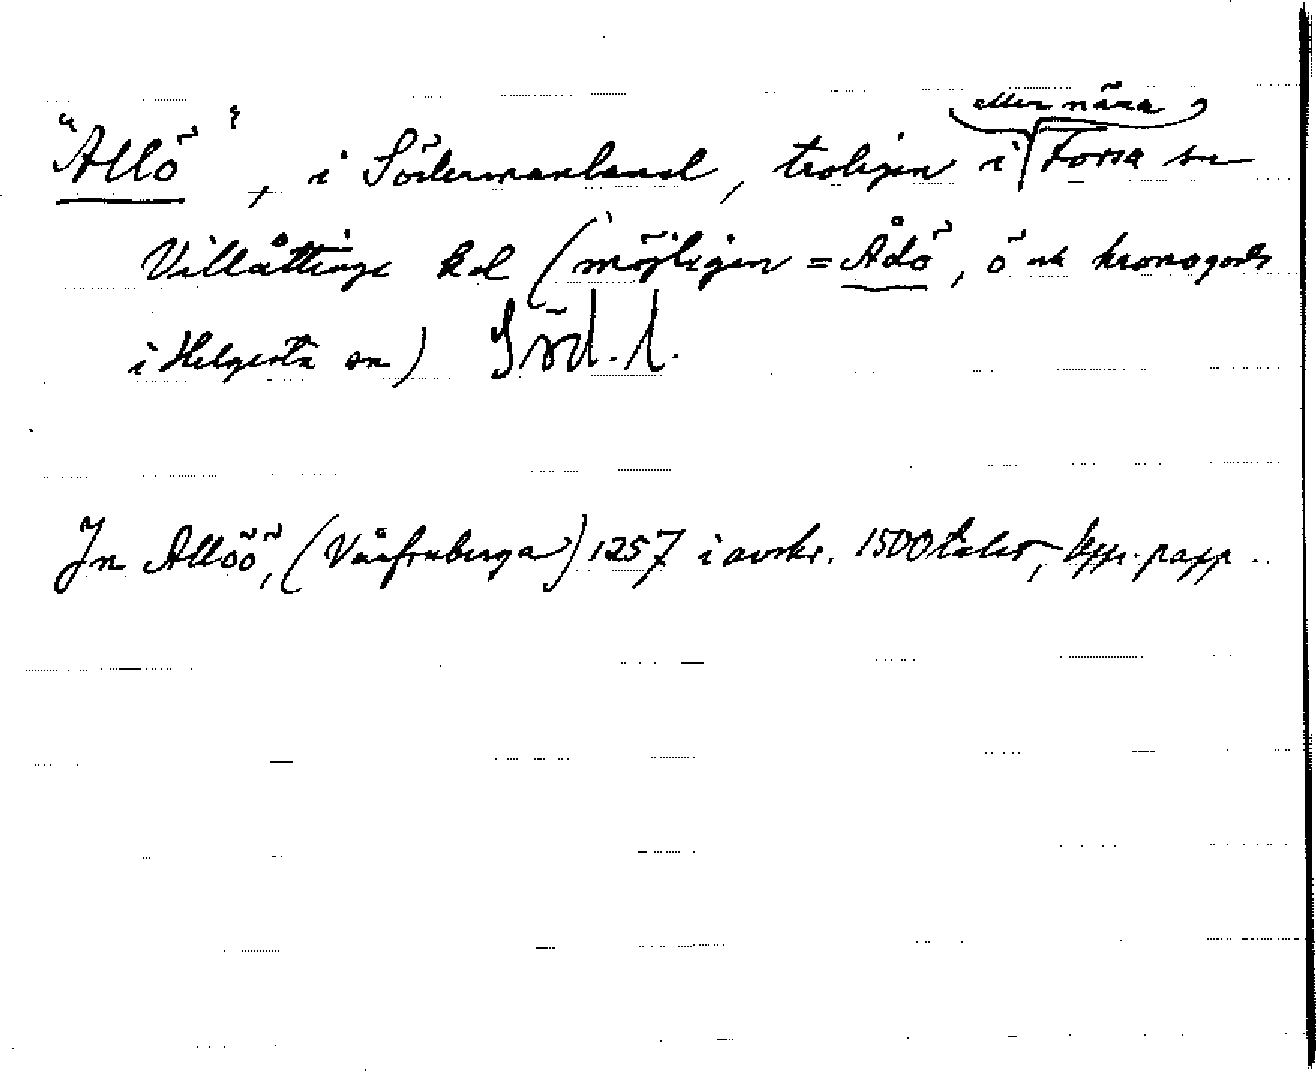 "Allö", i Södermanland, troligen i eller nära Forsa sn
Villåttinge hd (möjligen = Ådö, ö och kronogods
i Helgesta sn) Söd. l.
Jn Allöö, (Vårfruberga) 1257 i avskr. 1500talet, papp..